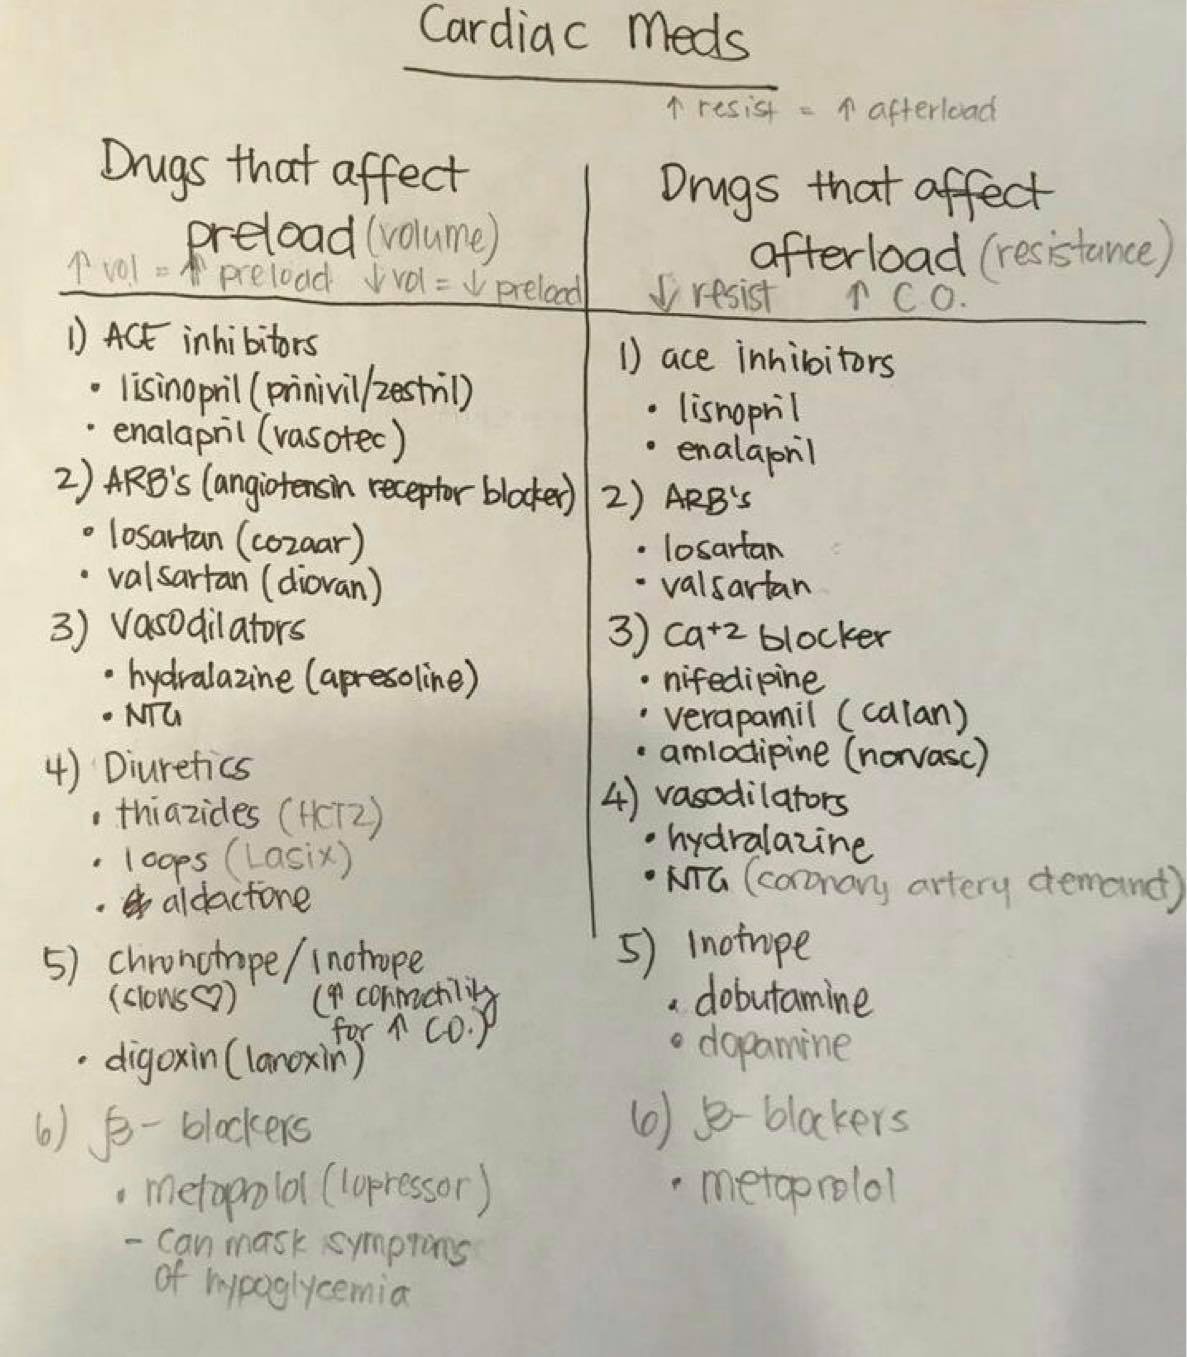 Cardiac Meds
↑ resist = ↑ afterload
Drugs that affect
preload (volume)
↑ vol = ↑ preload ↓ vol = ↓ preload
1) ACE inhibitors
• lisinopril (prinivil/zestril)
• enalapril (vasotec)
2) ARB's (angiotensin receptor blocker)
• losartan (cozaar)
• valsartan (diovan)
3) Vasodilators
• hydralazine (apresoline)
• NTG
4) Diuretics
• thiazides (HCTZ)
• loops (Lasix)
• aldactone
5) chronotrope/inotrope
(slows♡) (↑ contractility
for ↑ CO.)
• digoxin (lanoxin)
6) β - blockers
• metoprolol (lopressor)
- can mask symptoms
of hypoglycemia
Drugs that affect
afterload (resistance)
↓ resist ↑ C O.
1) ace inhibitors
• lisnopril
• enalapril
2) ARB's
• losartan
• valsartan
3) Ca+2 blocker
• nifedipine
• verapamil (calan)
• amlodipine (norvasc)
4) vasodilators
• hydralazine
• NTG (coronary artery demand)
5) Inotrope
• dobutamine
• dopamine
6) β- blockers
• metoprolol